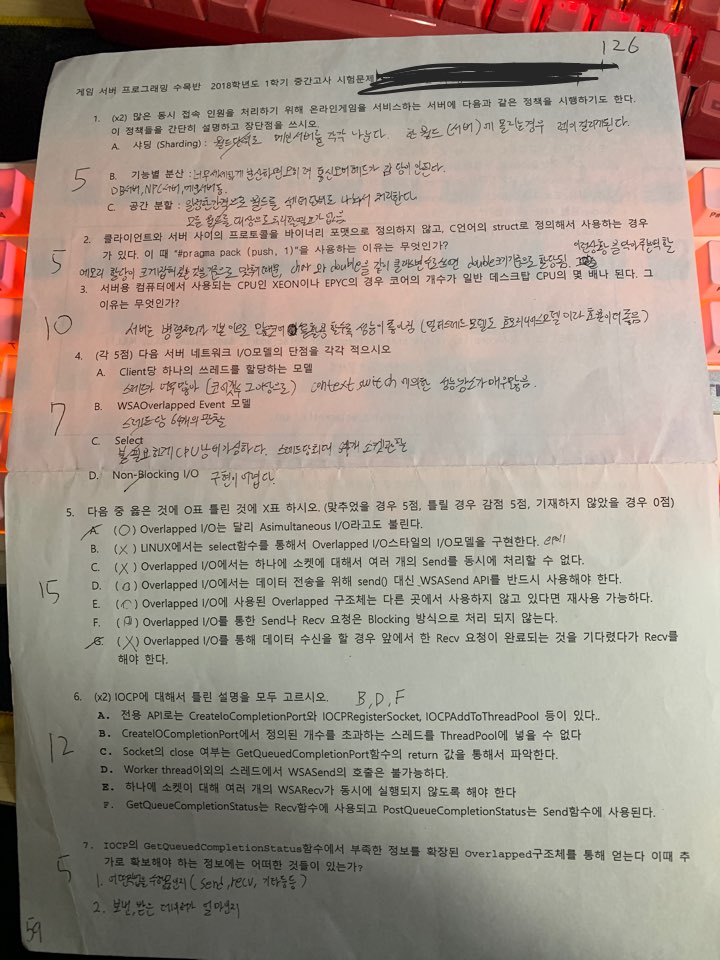 126
게임 서버 프로그래밍 수목반 2018학년도 1학기 중간고사 시험문제
1. (x2) 많은 동시 접속 인원을 처리하기 위해 온라인게임을 서비스하는 서버에 다음과 같은 정책을 시행하기도 한다.
이 정책들을 간단히 설명하고 장단점을 쓰시오.
A. 샤딩 (Sharding) : 월드단위로 메인서버를 각각 나눈다. 한 월드 (서버)에 몰리는경우 렉이 걸리게된다.
5
B. 기능별 분산 : 너무세세하게 분산하면오히려 통신오버헤드가 감당이안된다.
DB서버, NPC서버,
C. 공간 분할 : 일정한간격으로 월드를 나눠서 처리한다.
모든 월드를 대상으로 필요가없음
2. 클라이언트와 서버 사이의 프로토콜을 바이너리 포맷으로 정의하지 않고, C언어의 struct로 정의해서 사용하는 경우
5
가 있다. 이 때 "#pragma pack (push, 1)"을 사용하는 이유는 무엇인가?
메모리 char 와 double을 같이 쓰면 double크기로 할당됨.
3. 서버용 컴퓨터에서 사용되는 CPU인 XEON이나 EPYC의 경우 코어의 개수가 일반 데스크탑 CPU의 몇 배나 된다. 그
이유는 무엇인가?
10
서버는 병렬처리가 성능이 좋아짐 (멀티스레드 모델도 효율이더좋음)
4. (각 5점) 다음 서버 네트워크 I/O모델의 단점을 각각 적으시오
A. Client당 하나의 쓰레드를 할당하는 모델
스레드가 너무많아 (코어갯수 그이상으로) context switch 에의한 성능감소가 매우많음.
7
B. WSAOverlapped Event 모델
스레드당 64개의 한계
C. Select
불필요하게 CPU낭비가심하다. 스레드당최대 64개 소켓
D. Non-Blocking I/O 구현이 어렵다.
5. 다음 중 옳은 것에 O표 틀린 것에 X표 하시오. (맞추었을 경우 5점, 틀릴 경우 감점 5점, 기재하지 않았을 경우 0점)
A. (O) Overlapped I/O는 달리 Asimultaneous I/O라고도 불린다.
B. (X) LINUX에서는 select함수를 통해서 Overlapped I/O스타일의 I/O모델을 구현한다. epoll
C. (X) Overlapped I/O에서는 하나에 소켓에 대해서 여러 개의 Send를 동시에 처리할 수 없다.
15
D. (O) Overlapped I/O에서는 데이터 전송을 위해 send() 대신 WSASend API를 반드시 사용해야 한다.
E. (O) Overlapped I/O에 사용된 Overlapped 구조체는 다른 곳에서 사용하지 않고 있다면 재사용 가능하다.
F. (O) Overlapped I/O를 통한 Send나 Recv 요청은 Blocking 방식으로 처리 되지 않는다.
G. (X) Overlapped I/O를 통해 데이터 수신을 할 경우 앞에서 한 Recv 요청이 완료되는 것을 기다렸다가 Recv를
해야 한다.
6. (x2) IOCP에 대해서 틀린 설명을 모두 고르시오. B, D, F
A. 전용 API로는 CreateIoCompletionPort와 IOCPRegisterSocket, IOCPAddToThreadPool 등이 있다..
B. CreateIOCompletionPort에서 정의된 개수를 초과하는 스레드를 ThreadPool에 넣을 수 없다
12
C. Socket의 close 여부는 GetQueuedCompletionPort함수의 return 값을 통해서 파악한다.
D. Worker thread이외의 스레드에서 WSASend의 호출은 불가능하다.
E. 하나에 소켓이 대해 여러 개의 WSARecv가 동시에 실행되지 않도록 해야 한다
F. GetQueueCompletionStatus는 Recv함수에 사용되고 PostQueueCompletionStatus는 Send함수에 사용된다.
7. IOCP의 GetQueuedCompletionStatus함수에서 부족한 정보를 확장된 Overlapped구조체를 통해 얻는다 이때 추
5
가로 확보해야 하는 정보에는 어떠한 것들이 있는가?
1. 어떤작업을 (send, recv, 기타등등)
2. 보낸, 받은 데이터가 얼마인지
59